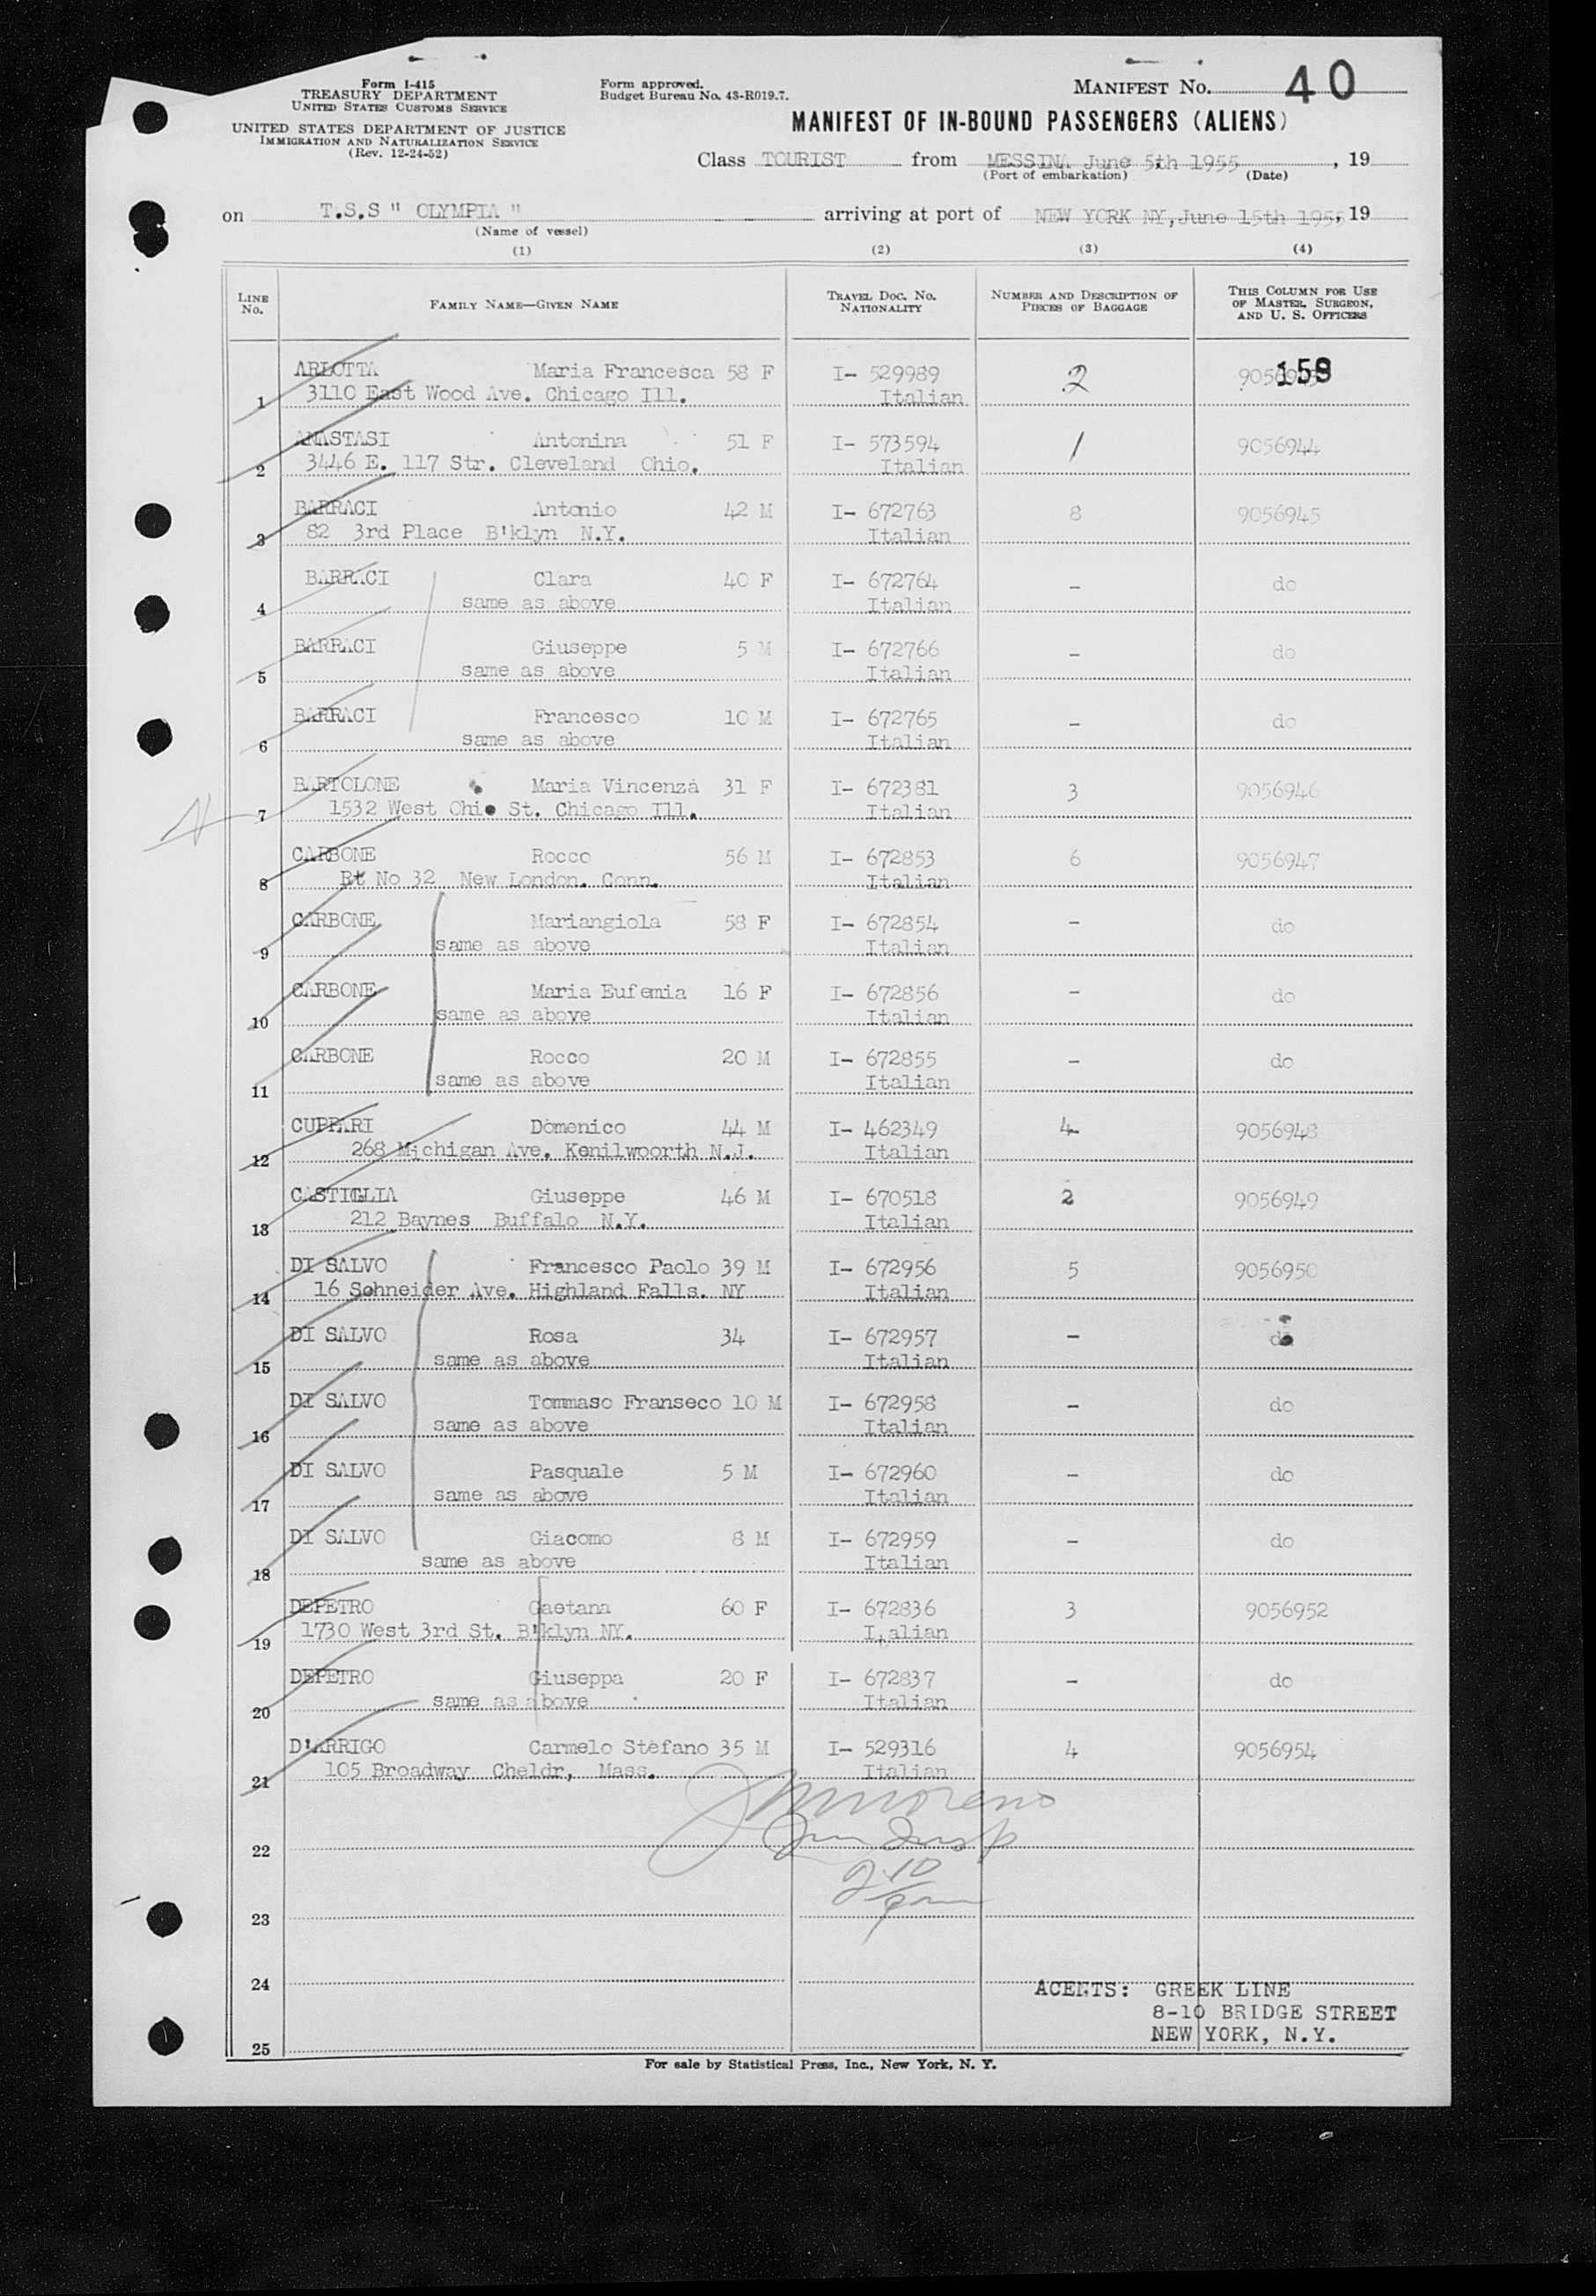 Form I-415
TREASURY DEPARTMENT
UNITED STATES CUSTOMS SERVICE
UNITED STATES DEPARTMENT OF JUSTICE
IMMIGRATION AND NATURALIZATION SERVICE
(Rev. 12-24-52)
Form approved.
Budget Bureau No. 43-R019.7.
MANIFEST No. 40
MANIFEST OF IN-BOUND PASSENGERS (ALIENS)
Class TOURIST from MESSINA June 5th 1955, 19
(Port of embarkation) (Date)
on T.S.S " OLYMPIA " arriving at port of NEW YORK NY, June 15th 1955, 19
(Name of vessel)
(1) (2) (3) (4)
LINE No. FAMILY NAME—GIVEN NAME TRAVEL DOC. NO. NATIONALITY NUMBER AND DESCRIPTION OF PIECES OF BAGGAGE THIS COLUMN FOR USE OF MASTER, SURGEON, AND U. S. OFFICERS
ARLOTTA Maria Francesca 58 F I- 529989 2 158
1 3110 East Wood Ave. Chicago Ill. Italian
ANASTASI Antonina 51 F I- 573594 1 9056944
2 3446 E. 117 Str. Cleveland Ohio. Italian
BARRACI Antonio 42 M I- 672763 8 9056945
3 82 3rd Place B'klyn N.Y. Italian
BARRACI Clara 40 F I- 672764 - do
4 same as above Italian
BARRACI Giuseppe 5 M I- 672766 - do
5 same as above Italian
BARRACI Francesco 10 M I- 672765 - do
6 same as above Italian
BARTOLONE Maria Vincenza 31 F I- 672381 3 9056946
7 1532 West Ohio St. Chicago Ill. Italian
CARBONE Rocco 56 M I- 672853 6 9056947
8 Rt No 32 New London. Conn. Italian
CARBONE Mariangiola 58 F I- 672854 - do
9 same as above Italian
CARBONE Maria Eufemia 16 F I- 672856 - do
10 same as above Italian
CARBONE Rocco 20 M I- 672855 - do
11 same as above Italian
CUPPARI Domenico 44 M I- 462349 4 9056948
12 268 Michigan Ave. Kenilwoorth N.J. Italian
CASTIGLIA Giuseppe 46 M I- 670518 2 9056949
13 212 Baynes Buffalo N.Y. Italian
DI SALVO Francesco Paolo 39 M I- 672956 5 9056950
14 16 Sohneider Ave. Highland Falls. NY Italian
DI SALVO Rosa 34 I- 672957 - do
15 same as above Italian
DI SALVO Tommaso Franseco 10 M I- 672958 - do
16 same as above Italian
DI SALVO Pasquale 5 M I- 672960 - do
17 same as above Italian
DI SALVO Giacomo 8 M I- 672959 - do
18 same as above Italian
DEPETRO Gaetana 60 F I- 672836 3 9056952
19 1730 West 3rd St. B'klyn NY. Italian
DEPETRO Giuseppa 20 F I- 672837 - do
20 same as above Italian
D'ARRIGO Carmelo Stefano 35 M I- 529316 4 9056954
21 105 Broadway Cheldr, Mass. Italian
22
23
24
25
ACENTS: GREEK LINE
8-10 BRIDGE STREET
NEW YORK, N.Y.
For sale by Statistical Press, Inc., New York, N. Y.